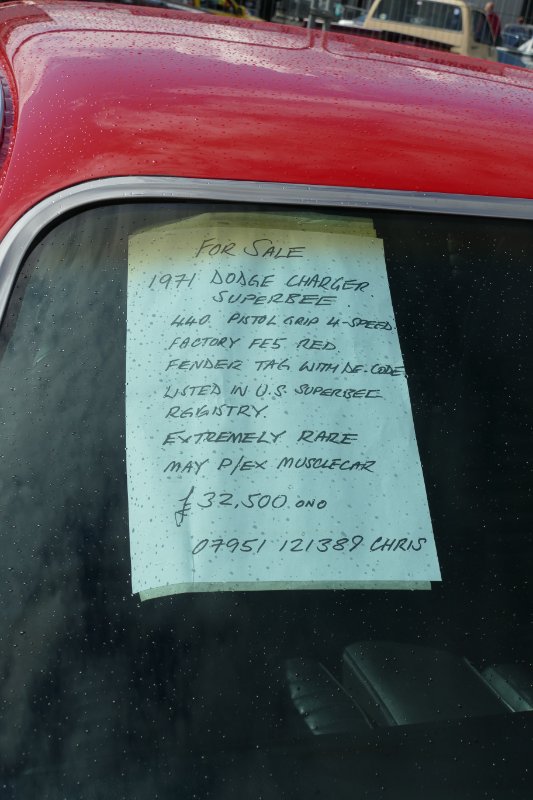 FOR SALE
1971 DODGE CHARGER
SUPERBEE
440. PISTOL GRIP 4-SPEED.
FACTORY FE5 RED
FENDER TAG WITH DE-CODE.
LISTED IN U.S. SUPERBEE
REGISTRY.
EXTREMELY RARE
MAY P/EX MUSCLECAR
£32,500 ONO
07951 121389 CHRIS